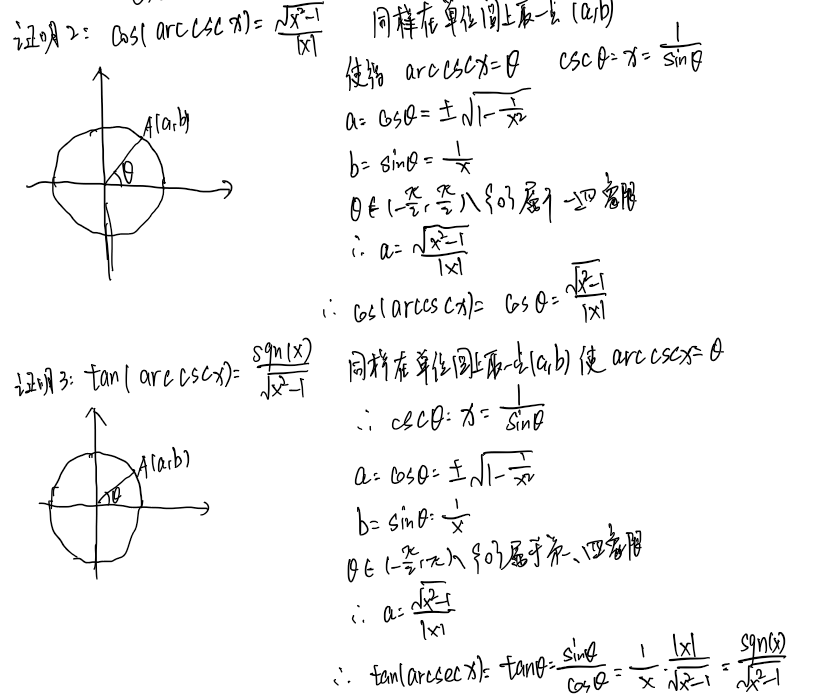 证明2: cos(arccscx)=√(x²-1)/|x| 同样在单位圆上取一点(a,b)
使得 arccscx=θ cscθ=x=1/sinθ
a=cosθ=±√(1-1/x²)
A(a,b)
b=sinθ=1/x
θ
θ∈(-π/2,π/2)\{0}属于一四象限
∴ a=√(x²-1)/|x|
∴ cos(arccscx)=cosθ=√(x²-1)/|x|
证明3: tan(arccscx)=sgn(x)/√(x²-1) 同样在单位圆上取一点(a,b)使arccscx=θ
∴ cscθ=x=1/sinθ
A(a,b)
a=cosθ=±√(1-1/x²)
θ
b=sinθ=1/x
θ∈(-π/2,π)\{0}属于第一、四象限
∴ a=√(x²-1)/|x|
∴ tan(arcsecx)=tanθ=sinθ/cosθ=1/x·|x|/√(x²-1)=sgn(x)/√(x²-1)